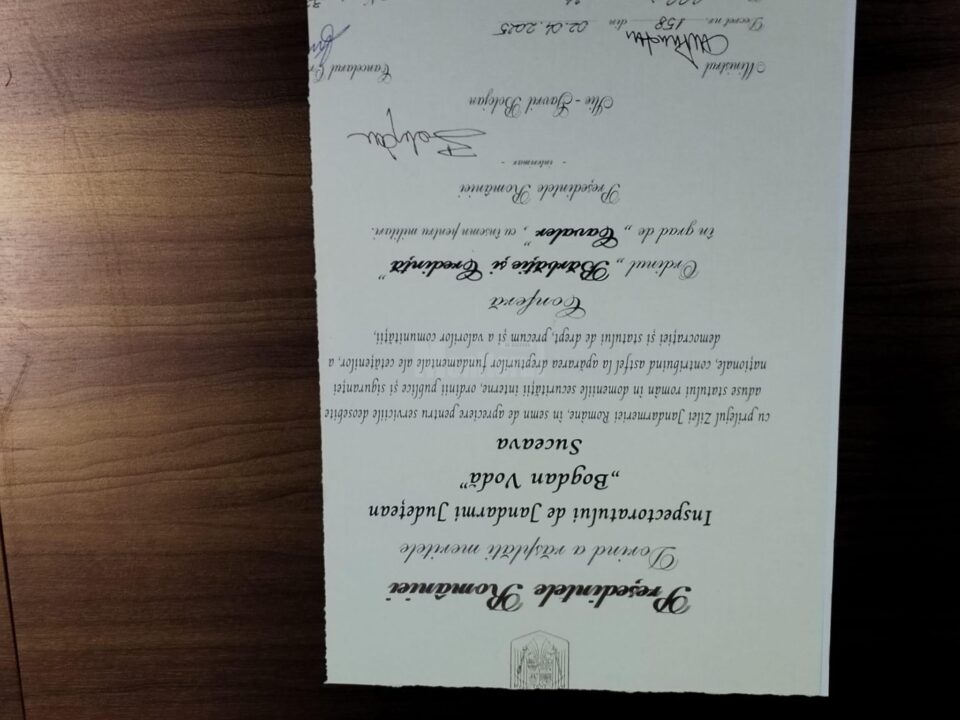 Președintele României
Dorind a răsplăti meritele
Inspectoratului de Jandarmi Județean
„Bogdan Vodă”
Suceava
cu prilejul Zilei Jandarmeriei Române, în semn de apreciere pentru serviciile deosebite
aduse statului român în domeniile securității interne, ordinii publice și siguranței
naționale, contribuind astfel la apărarea drepturilor fundamentale ale cetățenilor, a
democrației și statului de drept, precum și a valorilor comunității,
Conferă
Ordinul „Bărbăție și Credință”
în grad de „Cavaler”, cu însemn pentru militari.
Președintele României
- interimar -
Bolojan
Ilie - Gavril Bolojan
Ministrul
Cancelarul
Decret nr. 158 din 02.04.2025